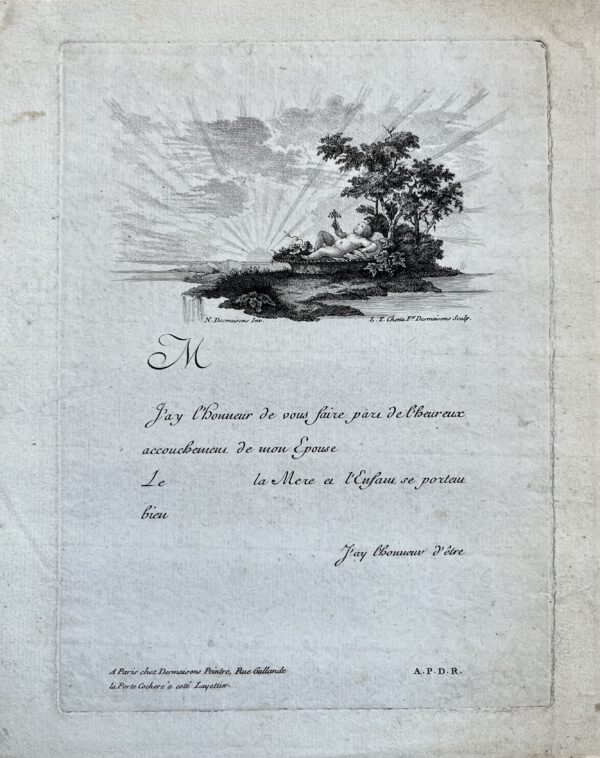 N. Desmaisons Inv.
L. T. Chenu Fe. Desmaisons Sculp.
M
J'ay l'honneur de vous faire part de l'heureux
accouchement de mon Epouse
Le la Mere et l'Enfant se portent
bien
J'ay l'honneur d'être
A Paris chez Desmaisons Peintre, Rue Gallande
la Porte Cochere à coté Layettier.
A. P. D. R.